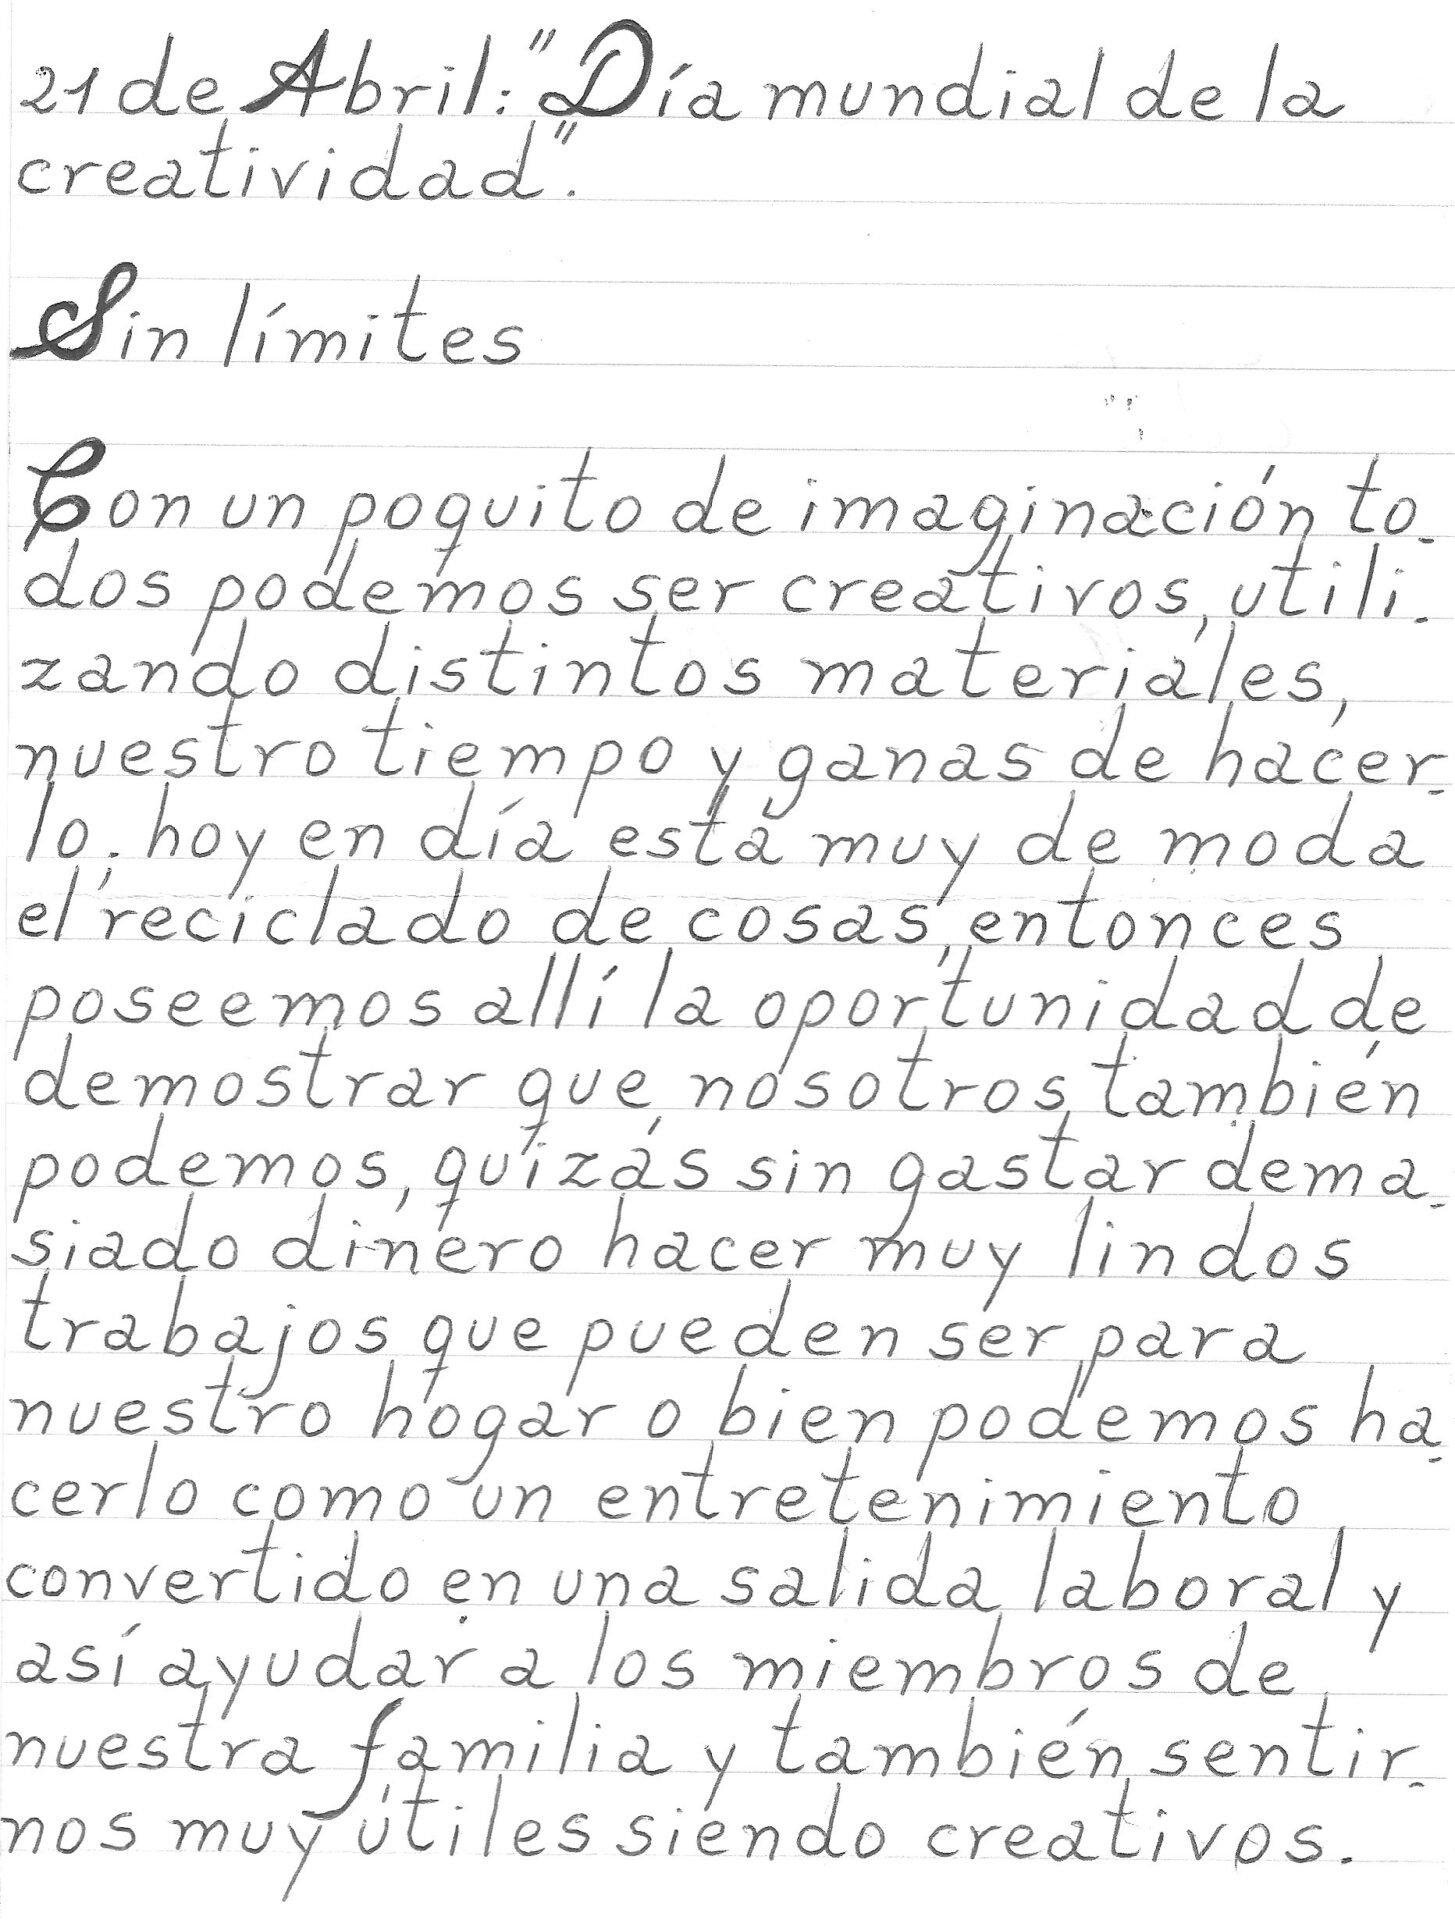 21 de Abril: "Día mundial de la
creatividad".
Sin límites
Con un poquito de imaginación to-
dos podemos ser creativos, utili-
zando distintos materiales,
nuestro tiempo y ganas de hacer-
lo; hoy en día está muy de moda
el reciclado de cosas, entonces
poseemos allí la oportunidad de
demostrar que nosotros también
podemos, quizás sin gastar dema-
siado dinero hacer muy lindos
trabajos que pueden ser para
nuestro hogar o bien podemos ha-
cerlo como un entretenimiento
convertido en una salida laboral y
así ayudar a los miembros de
nuestra familia y también sentir-
nos muy útiles siendo creativos.